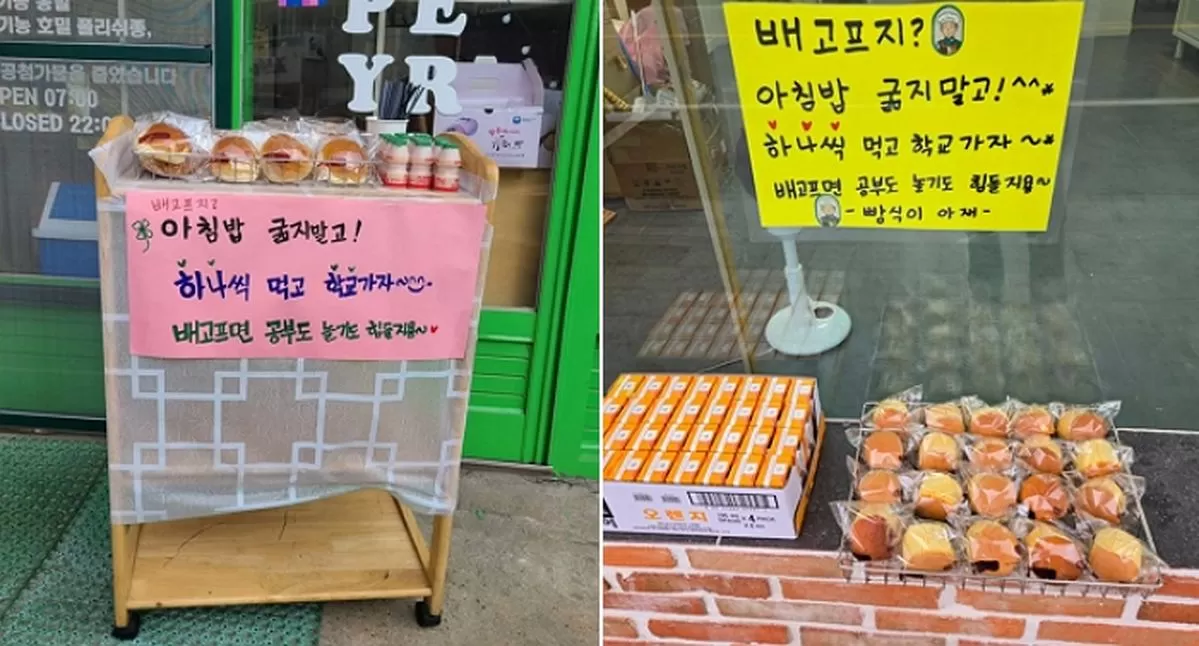 기능 호밀 쫄리쉬종,
공첨가물을 줄였습니다
PEN 07:00
LOSED 22:0
PE
YR
배고프지?
아침밥 굶지말고!
하나씩 먹고 학교가자~^^.
배고프면 공부도 놀기도 힘들지용~♥
배고프지?
아침밥 굶지말고! ^^*
하나씩 먹고 학교가자 ~*
배고프면 공부도 놀기도 힘들지용~
- 빵식이 아재 -
오렌지
x 4 PACK